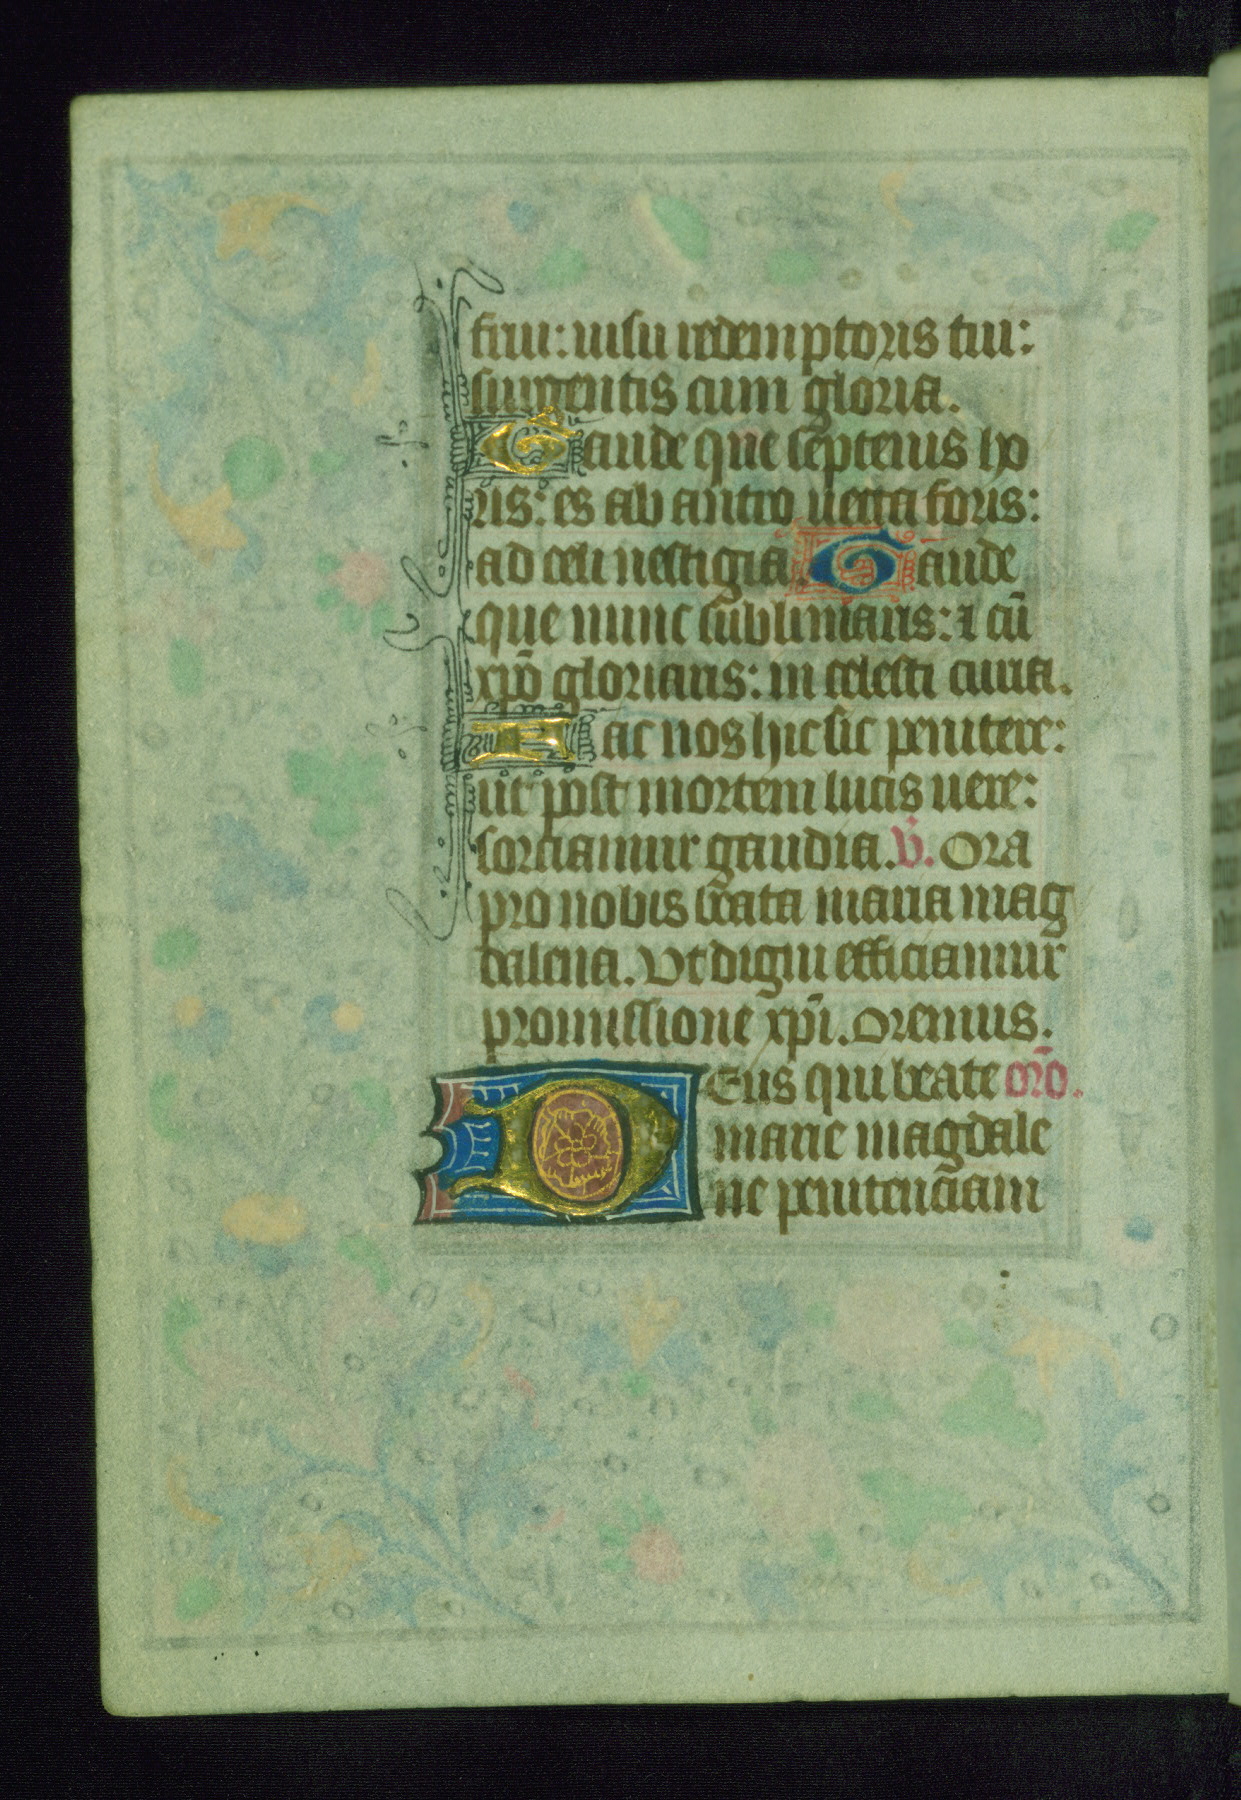 frui: uisu redemptoris tui:
surgentis cum gloria.
Gaude que septenis ho
ris: es ab antro uecta foris:
ad celi uestigia. Gaude
que nunc sublimaris: ⁊ cū
xp̄o gloriaris: in celesti curia.
Fac nos hic sic penitere:
ut post mortem lucis uere:
sorciamur gaudia. v̄. Ora
pro nobis beata maria mag
dalena. Vt digni efficiamur
promissione xp̄i. Oremus.
Deus qui beate or̄o.
marie magdale
ne penitenciam